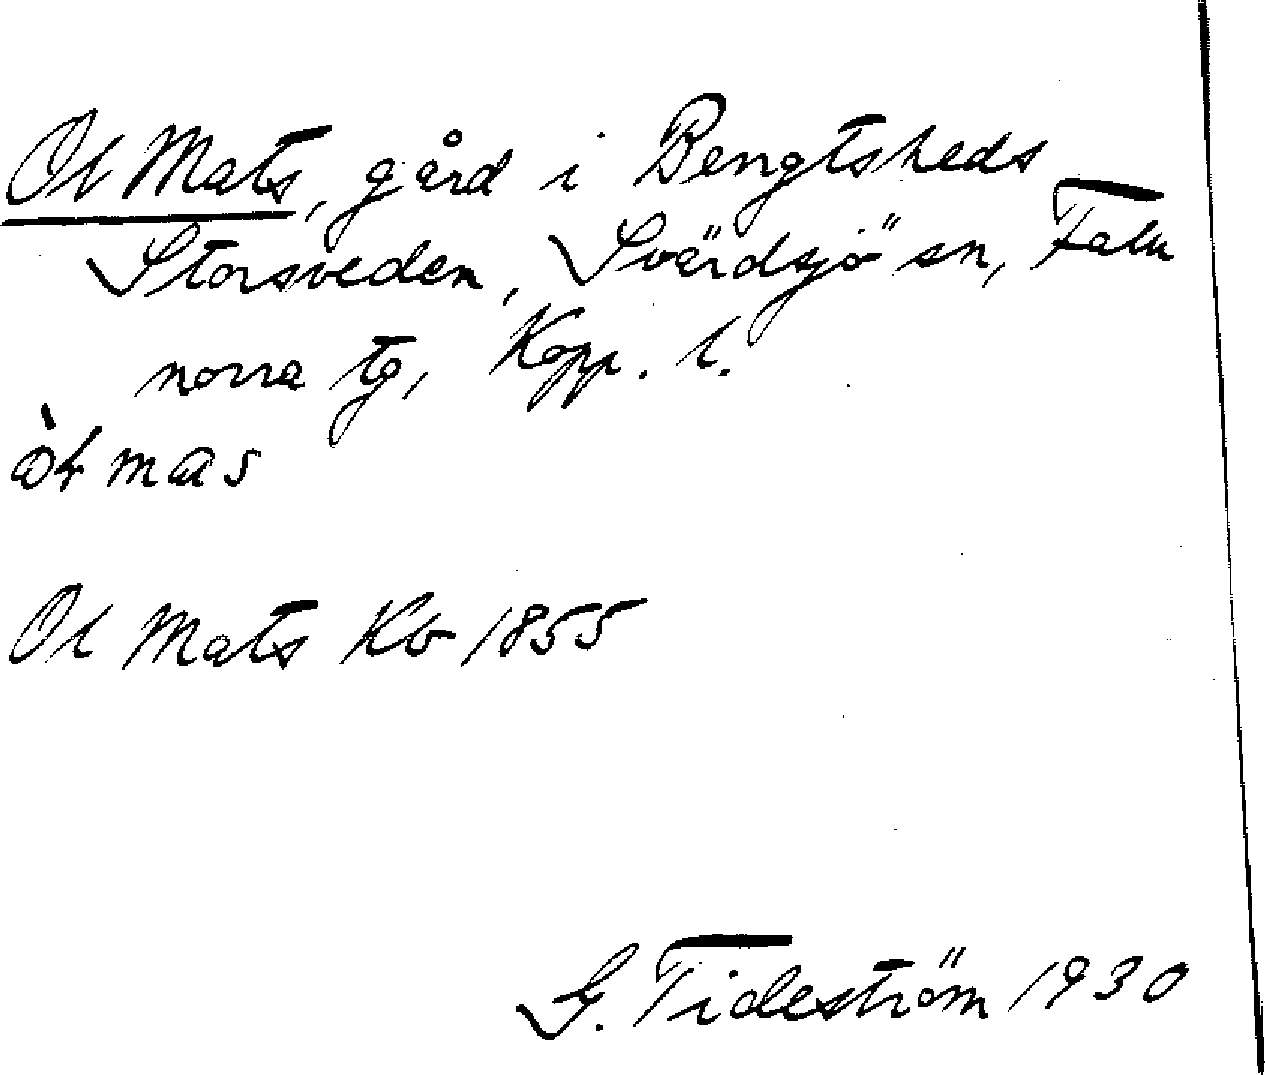 Ol Mats, gård i Bengtsheds
Storsveden, Svärdsjö sn, Falu
norra tg, Kopp. l.
Ol Mats Kb 1855
G. Tideström 1930